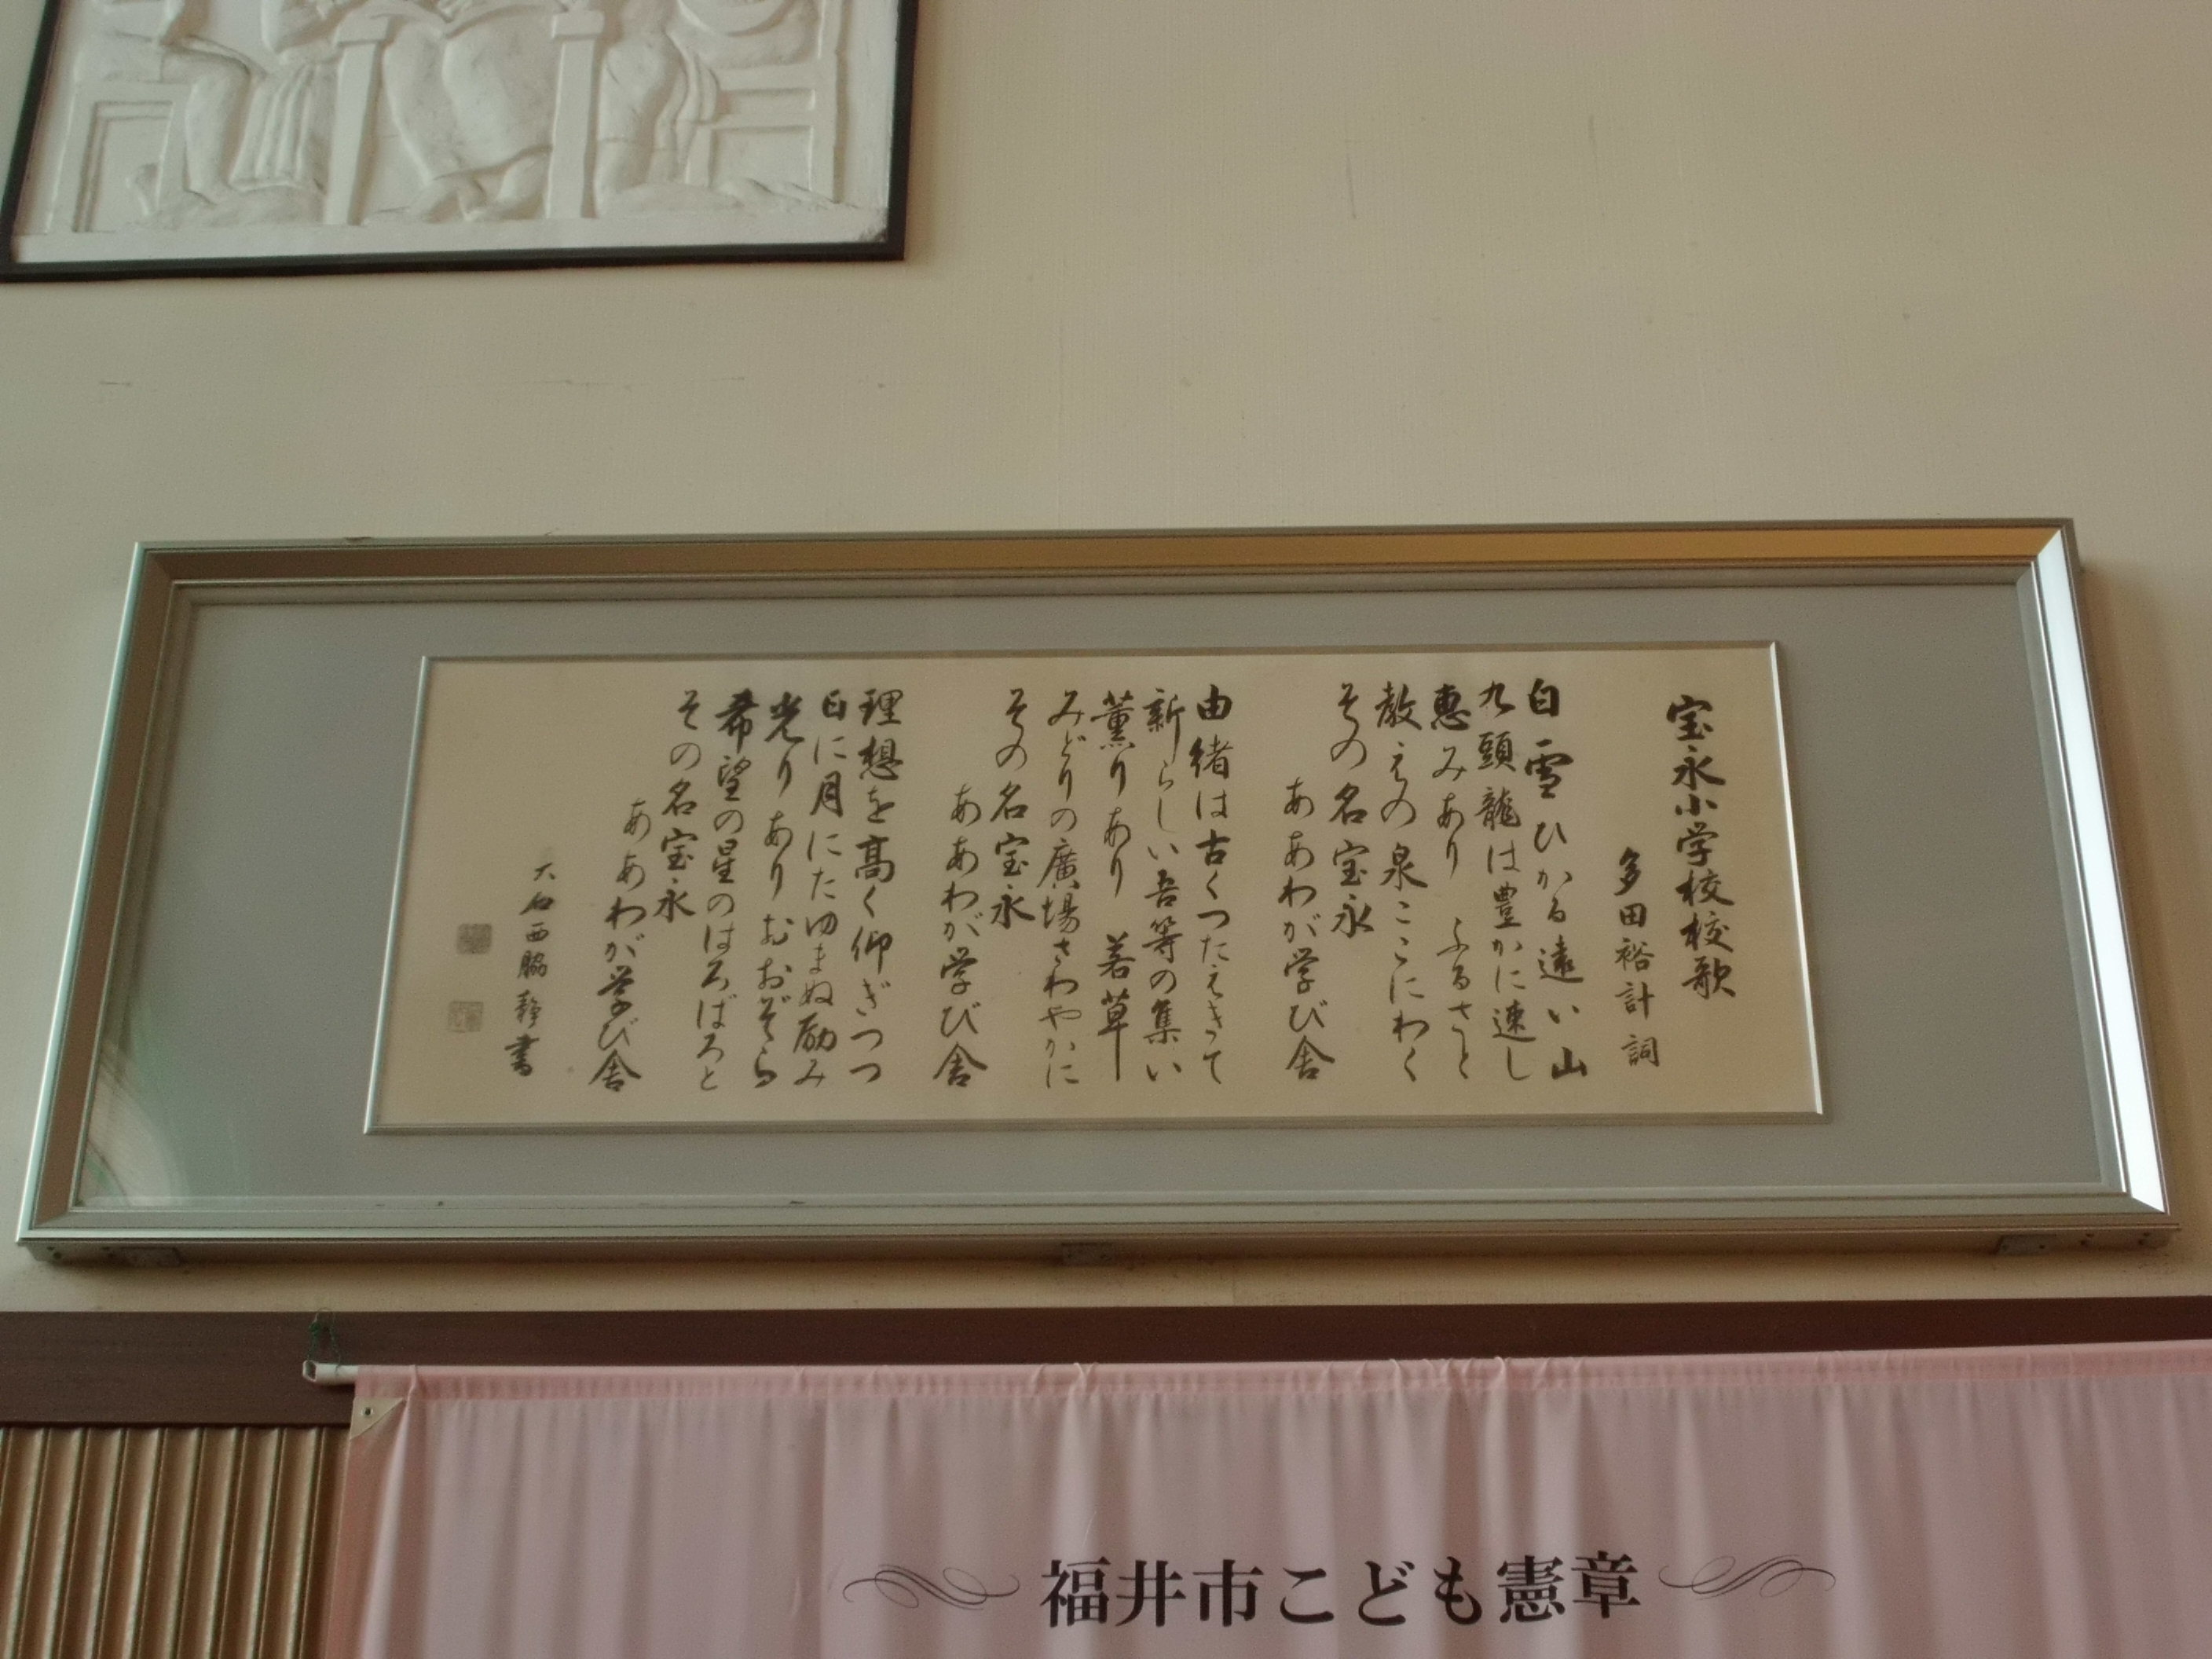 宝永小学校校歌
多田裕計 詞
白雪ひかる遠い山
九頭龍は豊かに速し
恵みあり ふるさと
教えの泉ここにわく
その名宝永
ああわが学び舎
由緒は古くつたえきて
新らしい吾等の集い
薫りあり 若草
みどりの廣場さわやかに
その名宝永
ああわが学び舎
理想を高く仰ぎつつ
日に月にたゆまぬ励み
光りあり おおぞら
希望の星のはろばろと
その名宝永
ああわが学び舎
大石西脇静書
福井市こども憲章